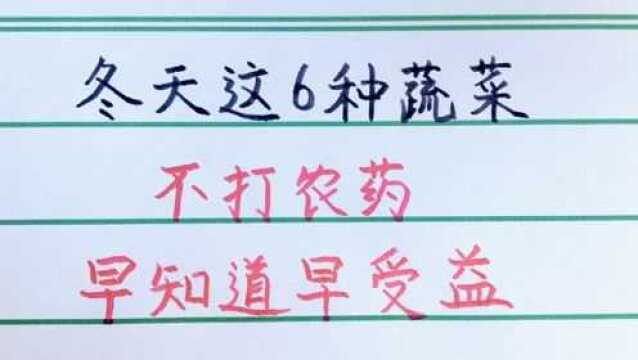 冬天这6种蔬菜
不打农药
早知道早受益